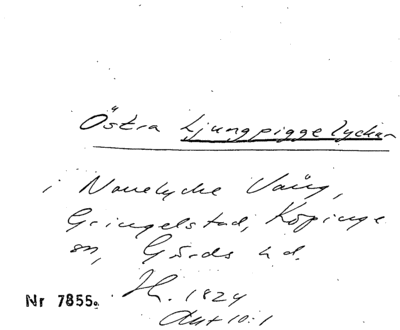 Östra Ljungpiggelyckan
i Nonelycke Vång,
Gringelstad, Köpinge
sn, Gärds hd.
Nr 7855. H. 1824
Akt 10:1